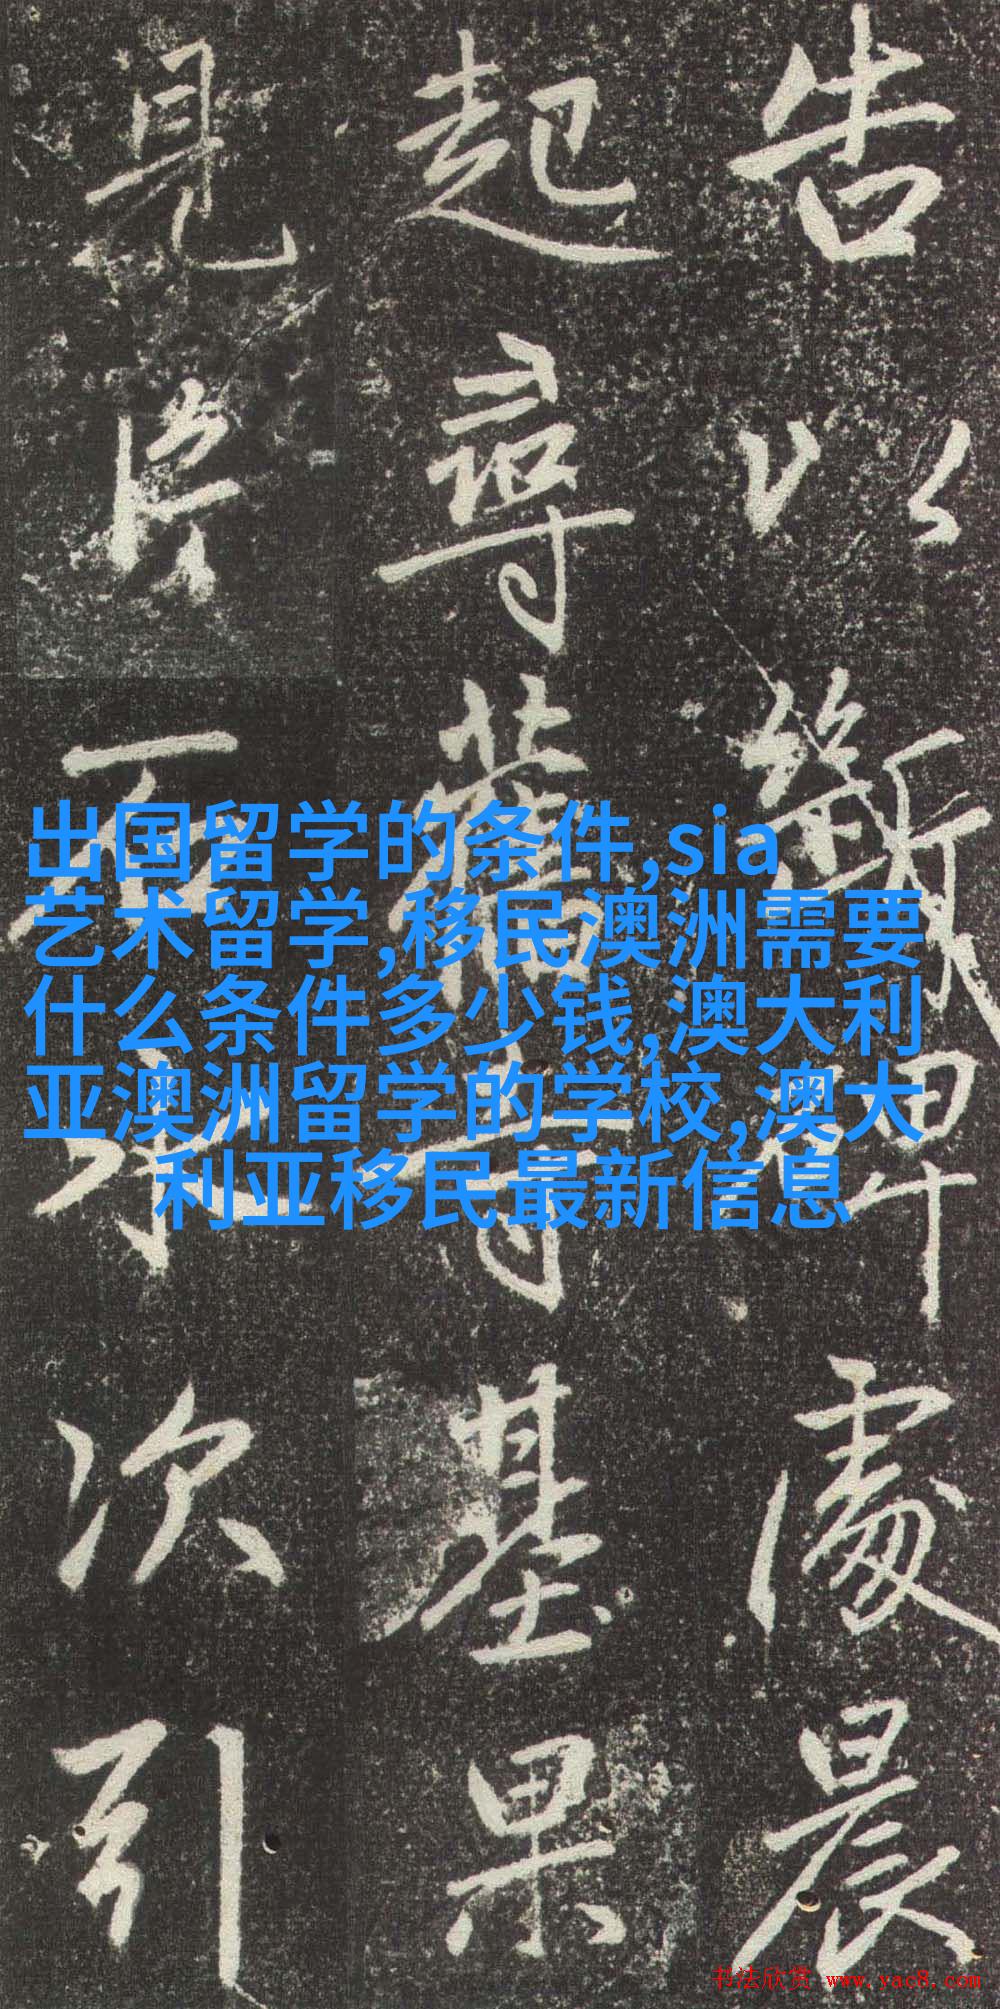 告以斷碑處晨
起尋舊寺基果
見片石水次引
出国留学的条件,sia
艺术留学,移民澳洲需要
什么条件多少钱,澳大利
亚澳洲留学的学校,澳大
利亚移民最新信息
书法欣赏 www.yac8.com